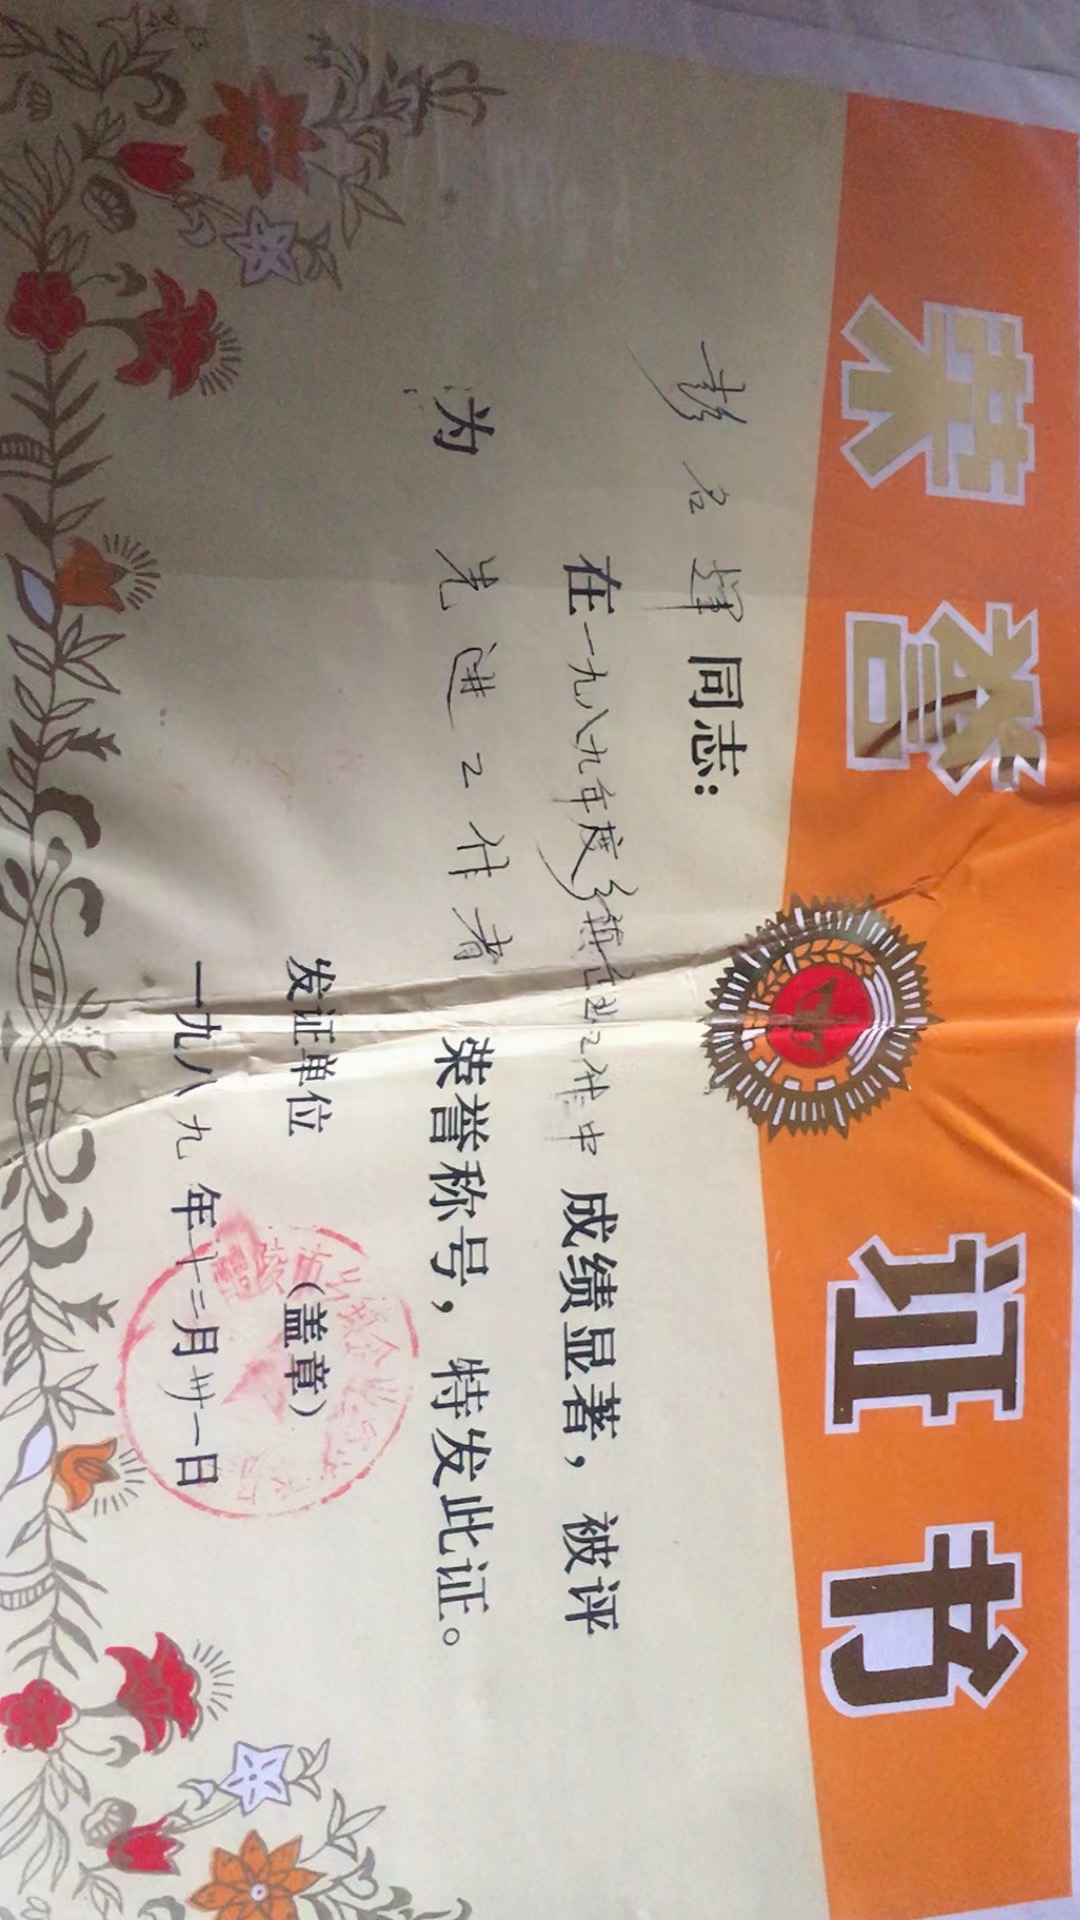 荣誉证书
彭名辉同志：
在一九八九年度乡镇企业工作中成绩显著，被评
为先进工作者荣誉称号，特发此证。
发证单位（盖章）
一九八九年十二月卅一日